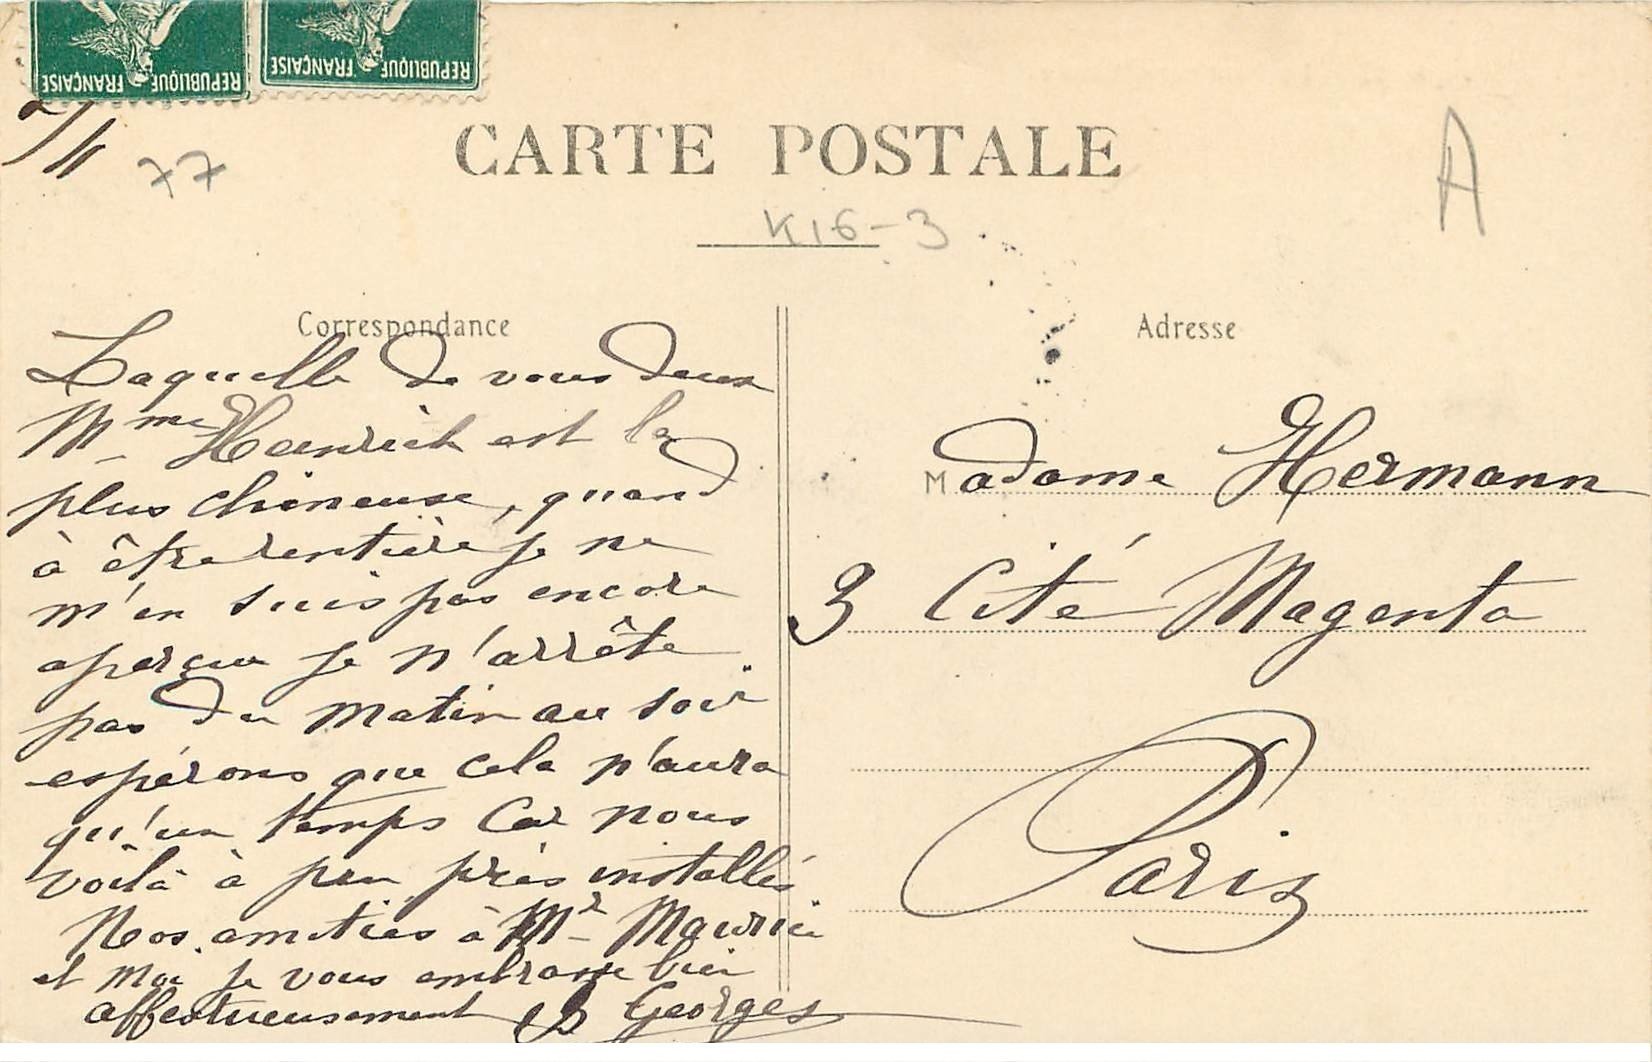 REPUBLIQUE FRANÇAISE
REPUBLIQUE FRANÇAISE
77
CARTE POSTALE
A
K16-3
Correspondance
Laquelle de vous deux
Mme Heinrich est la
plus chineuse, quand
à être rentière je ne
m'en suis pas encore
aperçue je n'arrête
pas du matin au soir
espérons que cela n'aura
qu'un temps car nous
voilà à peu près installés
Nos amitiés à Mr Maurice
et moi je vous embrasse bien
affectueusement Georges
Adresse
Madame Hermann
3 Cité Magenta
Paris